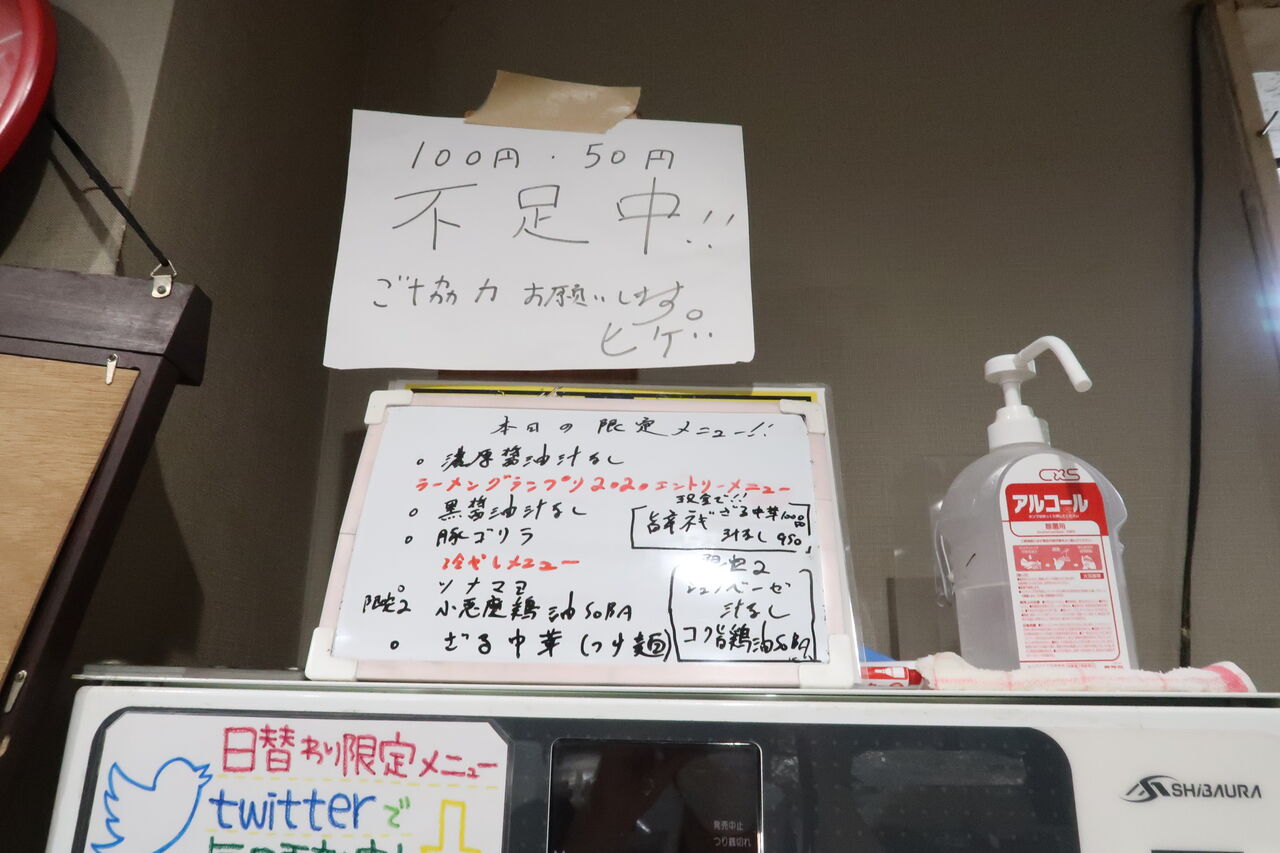 100円・50円
不足中!!
ご協力お願いします。
ヒゲ
本日の限定メニュー!!
○ 濃厚醤油汁なし
ラーメングランプリ2020エントリーメニュー
○ 黒醤油汁なし
○ 豚ゴリラ
現金で!!
ざる中華1000
汁なし 950
冷やしメニュー
○ ツナマヨ
限定2 小悪魔鶏油SOBA
○ ざる中華(つけ麺)
限定2
汁なし
コク旨鶏油SOBA
CXS
アルコール
除菌用
日替わり限定メニュー
twitterで
発売中止
つり銭切れ
SHIBAURA